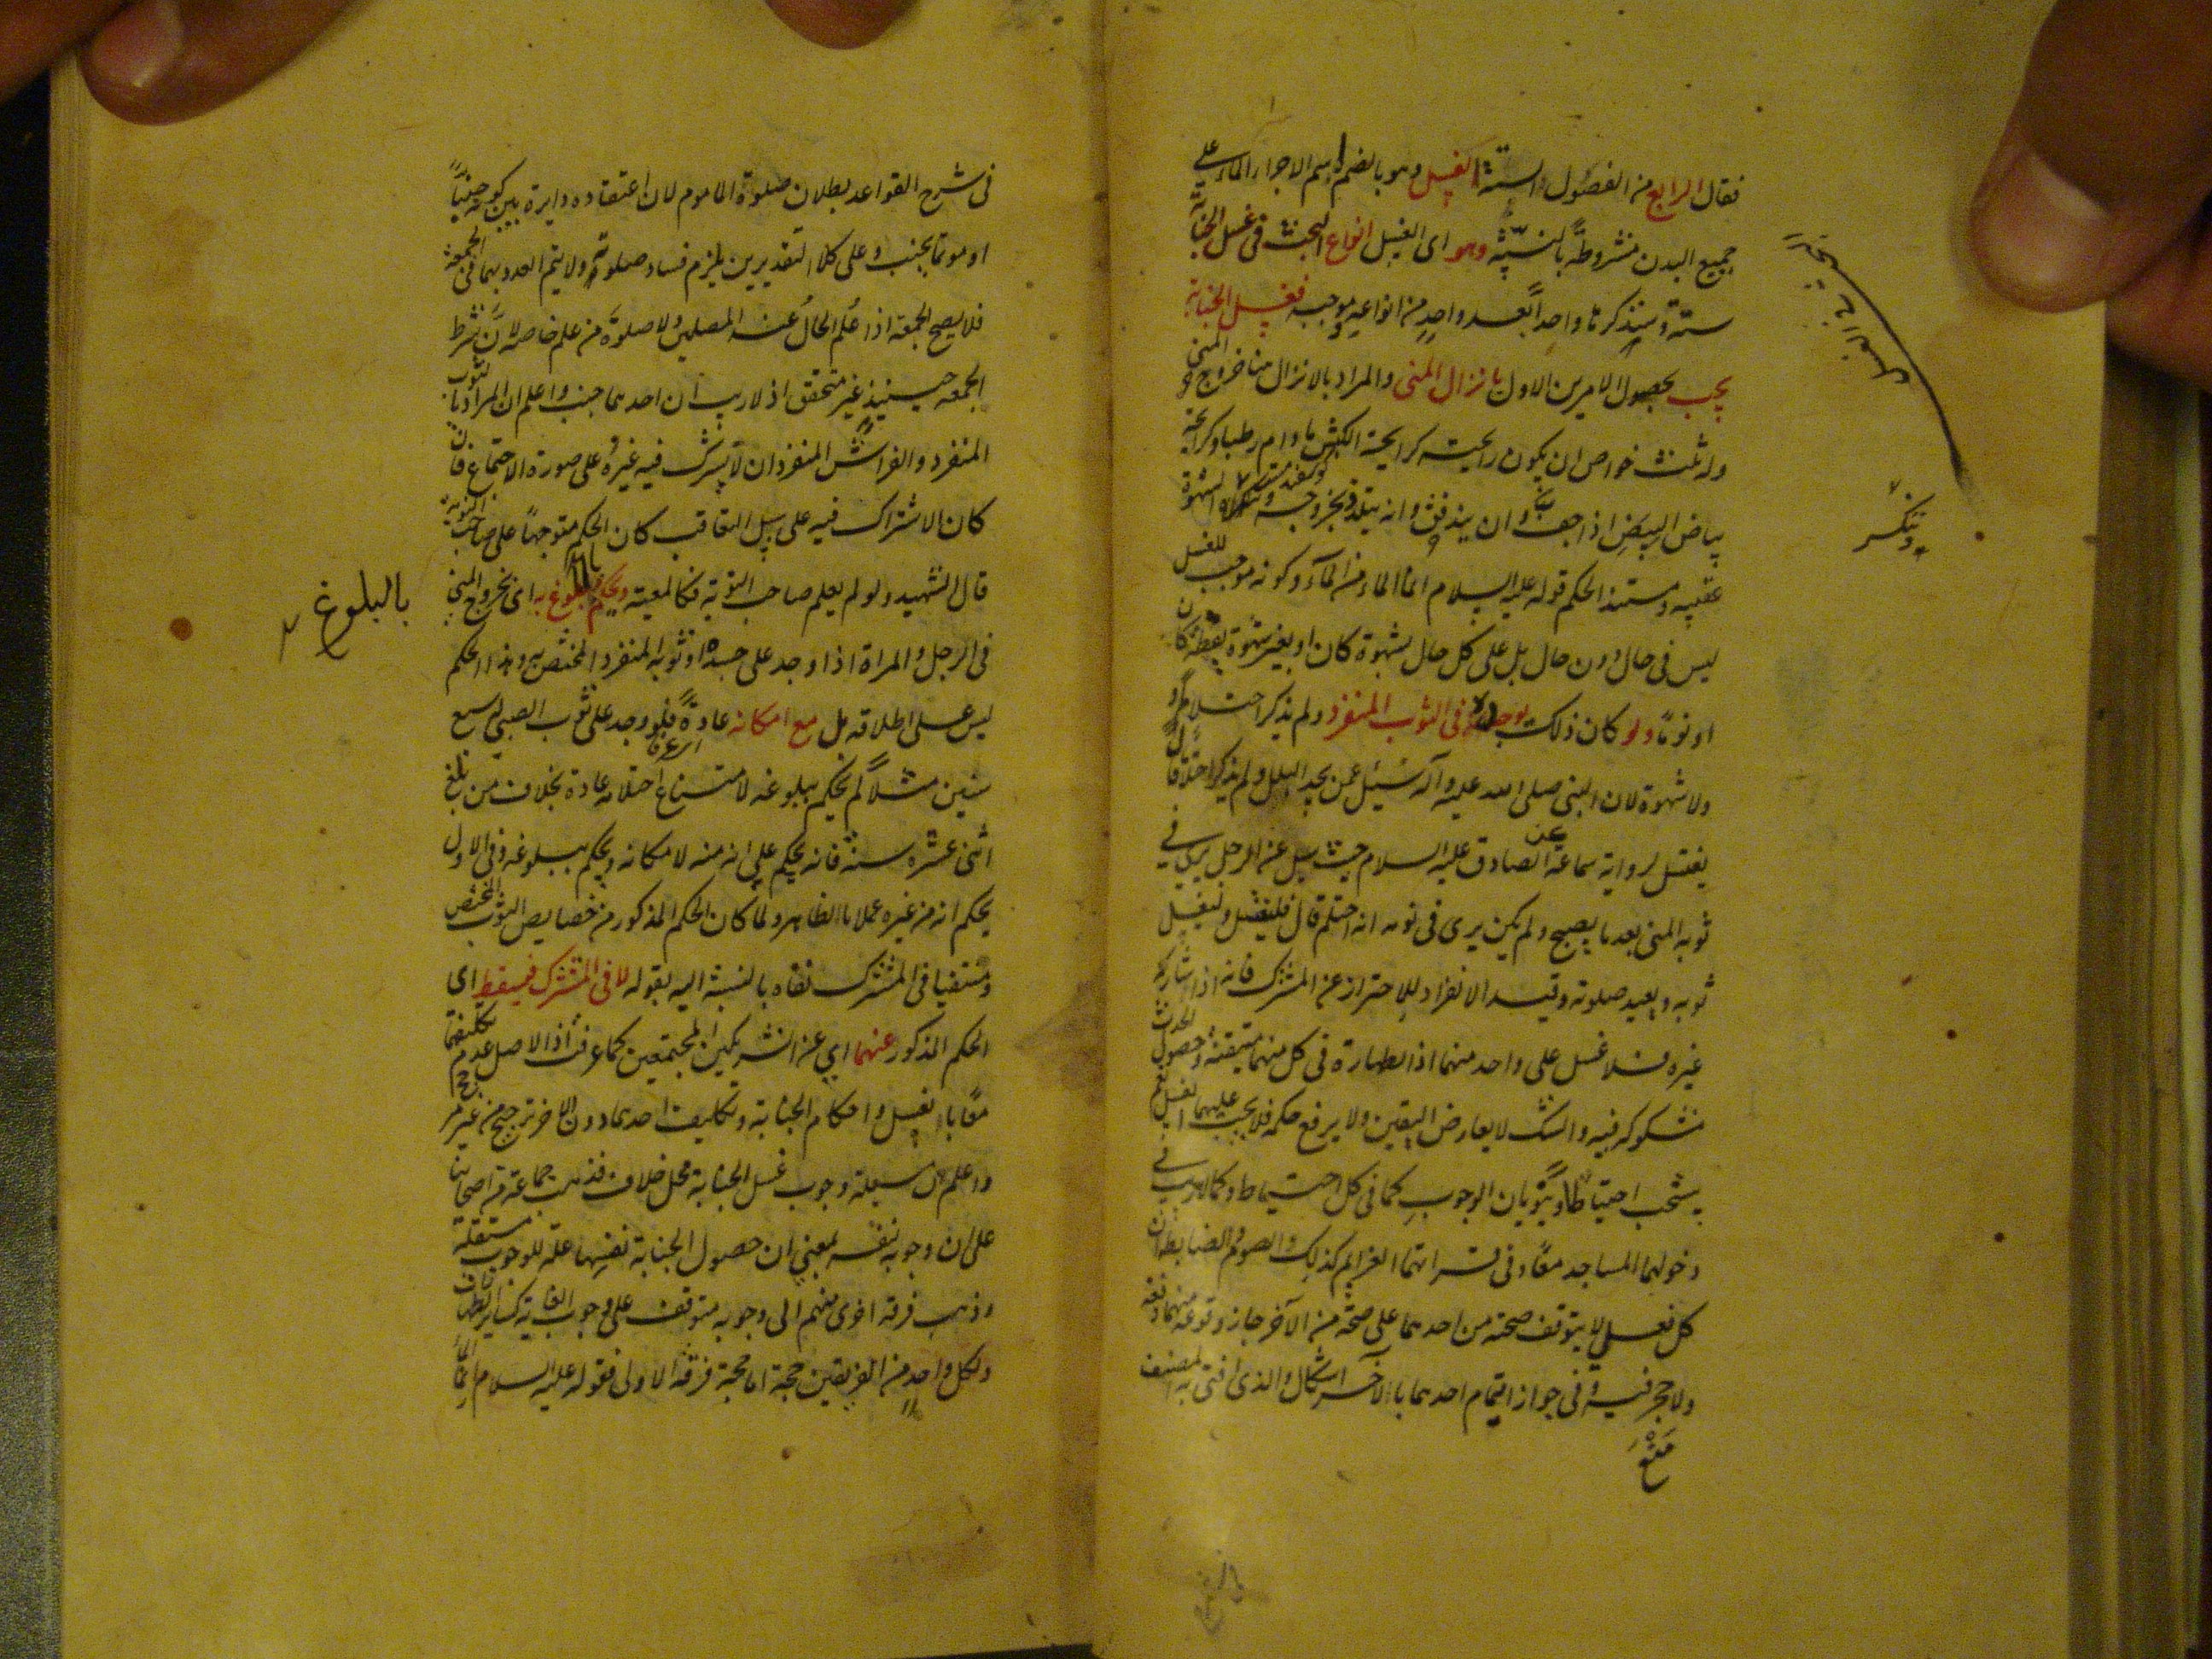 فقال الرابع من الفصول الستة الغسل وهو بالضم اسم الاجراء الماء على
جميع البدن مشروطة بالنية وهو اى الغسل انواع البحث فى غسل الجنابة
ستة وسنذكرها واحدا بعد واحد من انواعه موجبه فغسل الجنابة
يجب بحصول الامرين الاول بانزال المنى والمراد بالانزال هنا خروج المنى
وله ثلث خواص ان يكون رايحته كرايحة الكش مادام رطبا وكرايحة
بياض البيض اذا جف وان يندفق وانه يتلذذ بخروجه الشهوة
عقيبه ومستند الحكم قوله عليه السلام انما الماء من الماء وكونه موجب للغسل
ليس فى حال دون حال بل على كل حال بشهوة كان او بغير شهوة يقظة كان
او نوما ولو كان ذلك فى الثوب المنفرد ولم يذكر احتلاما
ولا شهوة لان النبى صلى الله عليه وآله سئيل عمن يجد البلل ولم يذكر احتلاما قال
يغتسل لرواية سماعة عن الصادق عليه السلام حيث سيل عن الرجل يرى فى
ثوبه المنى بعد ما يصبح ولم يكن يرى فى نومه انه احتلم قال فليغتسل وليغسل
ثوبه ويعيد صلوته وقيد الانفراد للاحتراز عن المشترك فانه اذا شاركه
غيره فلا غسل على واحد منهما اذ الطهارة فى كل منهما متيقنة وحصول الحدث
مشكوك فيه والشك لا يعارض اليقين ولا يرفع حكمه فلا يجب عليهما الغسل نعم
يستحب احتياطا وينويان الوجوب كما فى كل احتياط وكما لا ريب فى
دخولهما المساجد معا وفى قرائتهما العزايم كذلك والصوم الضابط ان
كل فعل لا يتوقف صحته من احدهما على صحة من الآخر جاز وقوعه منهما دفعة
ولا حجر فيه وفى جواز ايتمام احدهما بالآخر اشكال والذى افتى به المصنف
ويتكسر
فى شرح القواعد بطلان صلوة الماموم لان اعتقاده دايرة بين كونه جنبا
او موتما بجنب وعلى كلا التقديرين يلزم فساد صلوته ولا يتم العدد بهما فى الجمعة
فلا يصح الجمعة اذا علم الحال عند المصلين ولا صلوة من علم خاصة لان شرط
الجمعة حينيذ غير متحقق اذ لا ريب ان احدهما جنب واعلم ان المراد بالثوب
المنفرد والفراش المنفرد ان لا يشترك فيه غيره على صورة الاجتماع فان
كان الاشتراك فيه على سبيل التعاقب كان الحكم متوجها على صاحب النوبة
قال الشهيد ولو لم يعلم صاحب النوبة فكالمعية ويحكم بالبلوغ به اى بخروج المنى
فى الرجل والمراة اذا وجد على جسده او ثوبه المنفرد المختص به وهذا الحكم
ليس على اطلاقه بل مع امكانه عادة فلو وجد على ثوب الصبى لسبع
سنين مثلا لم يحكم ببلوغه لامتناع احتلامه عادة بخلاف من بلغ
اثنى عشره سنة فانه يحكم على انه منه لامكانه ويحكم ببلوغه وفى الاول
يحكم انه من غيره عملا بالظاهر ولما كان الحكم المذكور من خصايص الثوب المختص
ومنتفيا فى المشترك نفاه بالنسبة اليه بقوله لا فى المشترك فيسقط اى
الحكم المذكور عنهما اى عن الشريكين المجتمعين كما عرفت اذ الاصل عدم تكليفهما
معا بالغسل واحكام الجنابة وتكليف احدهما دون الآخر ترجيح من غير مرجح
واعلم ان مسئلة وجوب غسل الجنابة محل خلاف فذهب جماعة من اصحابنا
على ان وجوبه لنفسه بمعنى ان حصول الجنابة نفسها علة للوجوب مستقلة
وذهب فرقة اخرى منهم الى وجوبه متوقف على وجوب الغاية كساير الطهارات
ولكل واحد من الفريقين حجة اما حجة فرقة الاولى فقوله عليه السلام انما الماء
بالبلوغ